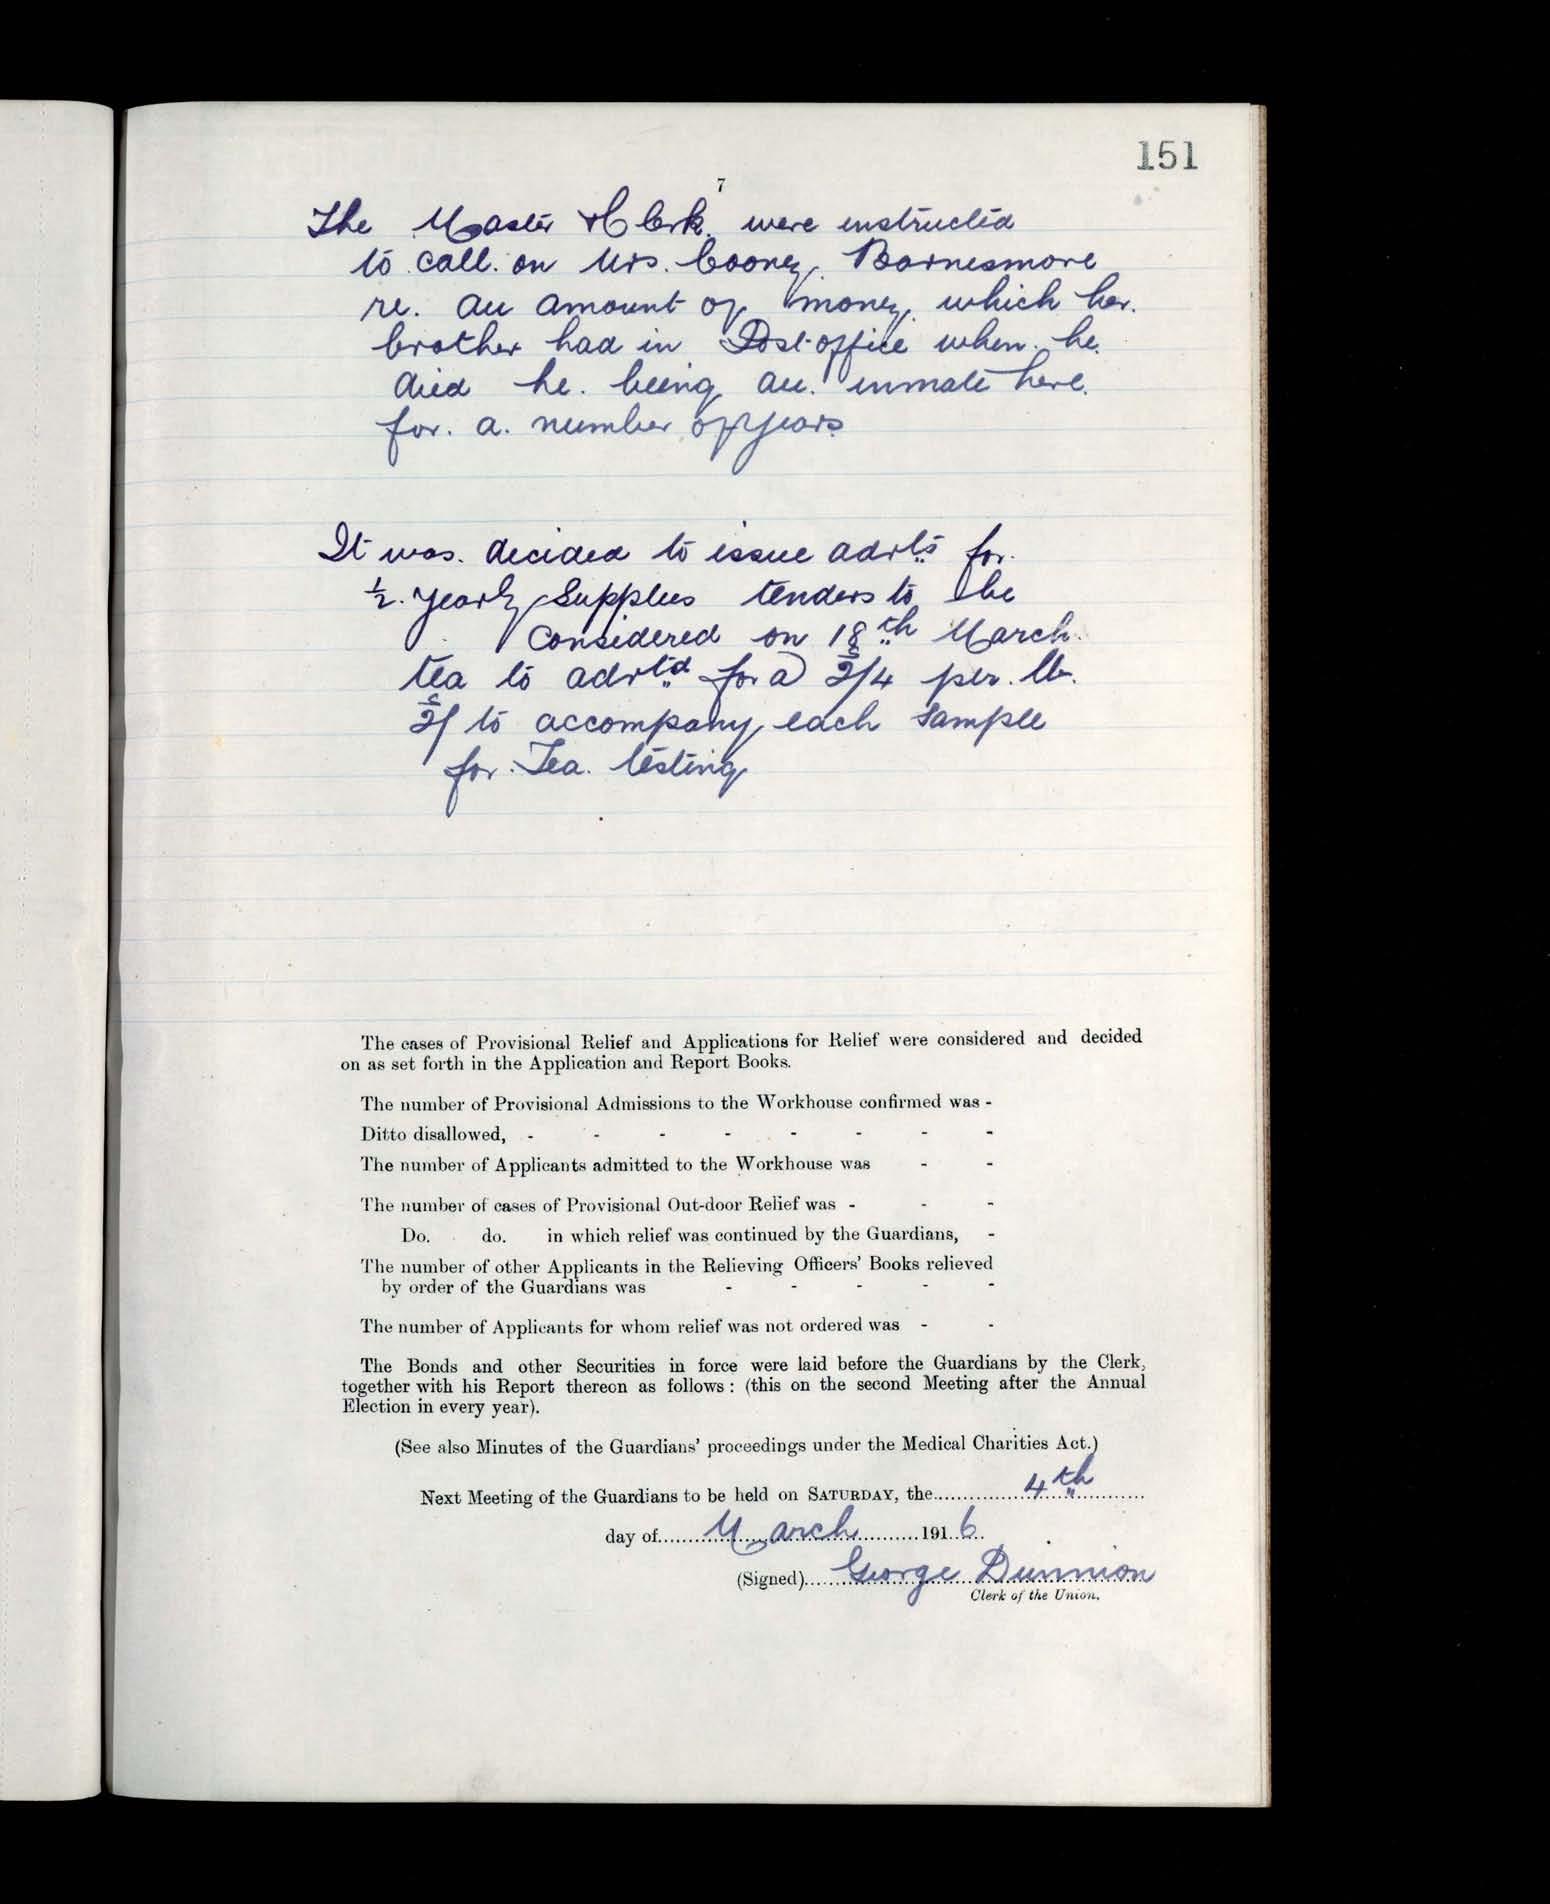 151
7
The Master & Clerk. were instructed
to call. on Mrs. Cooney, Barnesmore
re. an amount of money, which her.
brother had in Post-office when. he.
died he. being an. inmate here.
for. a. number of years
It was. decided to issue advts for.
½. yearly Supplies tenders to be
Considered on 18th March.
tea to advtd for @ 2/4 per. lb.
2/ to accompany each sample
for. Tea. testing
The cases of Provisional Relief and Applications for Relief were considered and decided
on as set forth in the Application and Report Books.
The number of Provisional Admissions to the Workhouse confirmed was -
Ditto disallowed, - - - - - - - -
The number of Applicants admitted to the Workhouse was - -
The number of cases of Provisional Out-door Relief was - - -
Do. do. in which relief was continued by the Guardians, -
The number of other Applicants in the Relieving Officers' Books relieved
by order of the Guardians was - - - - -
The number of Applicants for whom relief was not ordered was - -
The Bonds and other Securities in force were laid before the Guardians by the Clerk,
together with his Report thereon as follows: (this on the second Meeting after the Annual
Election in every year).
(See also Minutes of the Guardians' proceedings under the Medical Charities Act.)
Next Meeting of the Guardians to be held on SATURDAY, the 4th
day of March 1916.
(Signed) George Dunnion
Clerk of the Union.